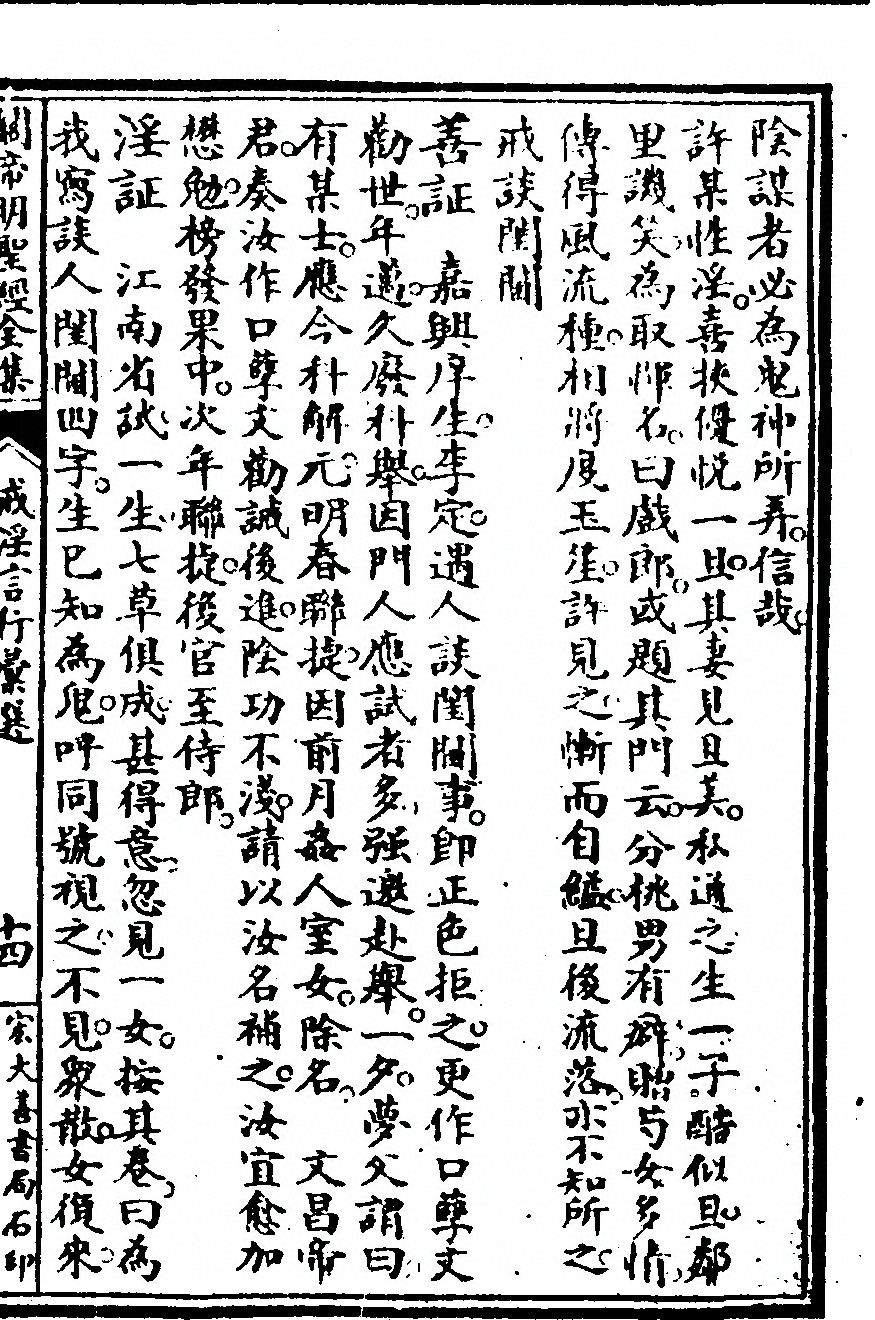 陰謀者必為鬼神所弄信哉
許某性淫喜狹優悅一旦其妻見旦美私通之生一子酷似旦鄰
里譏笑為取惟名曰戲郎或題其門云分桃男有癖貽与女多情
傳得風流種相將度玉笙許見之慚而自縊旦後流落亦不知所之
戒談閨閫
善証　嘉興庠生李定遇人談閨閫事即正色拒之更作口孽文
勸世年邁久廢科舉因門人應試者多强邀赴舉一夕夢父謂曰
有某士應今科解元明春聯捷因前月姦人室女除名　文昌帝
君奏汝作口孽文勸誡後進陰功不淺請以汝名補之汝宜愈加
懋勉榜發果中次年聯捷後官至侍郎
淫証　江南省試一生七草俱成甚得意忽見一女按其卷曰為
我寫談人閨閫四字生已知為鬼呼同號視之不見眾散女復來
關帝明聖經全集
戒淫言行彙選
十四
宏大善書局石印